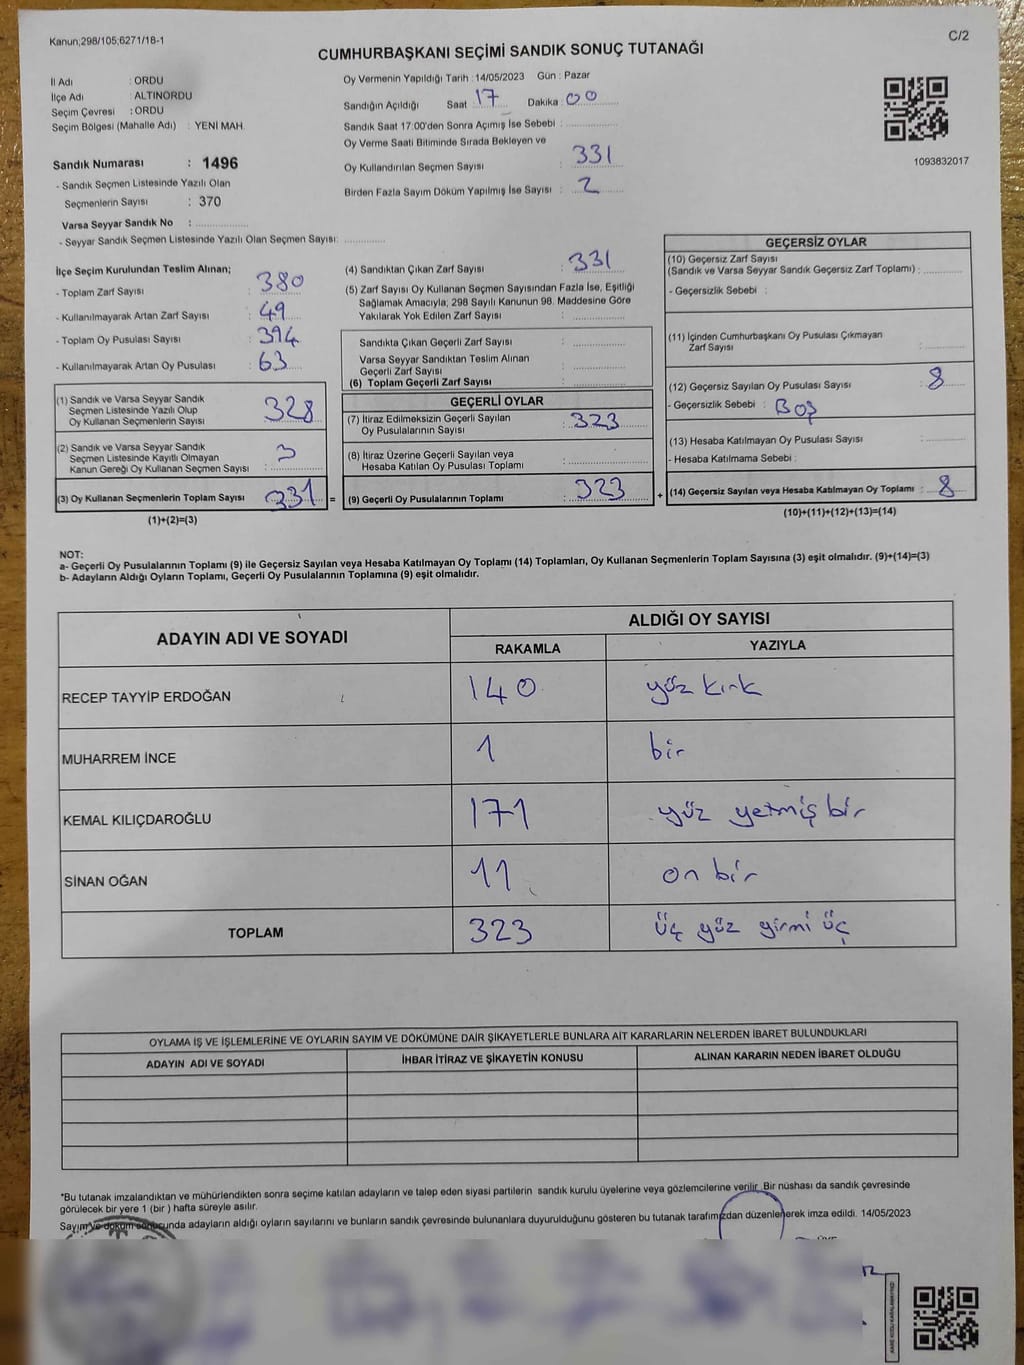 Kanun;298/105;6271/18-1
C/2
CUMHURBAŞKANI SEÇİMİ SANDIK SONUÇ TUTANAĞI
İl Adı : ORDU
İlçe Adı : ALTINORDU
Seçim Çevresi : ORDU
Seçim Bölgesi (Mahalle Adı) : YENİ MAH.
Sandık Numarası : 1496
- Sandık Seçmen Listesinde Yazılı Olan
Seçmenlerin Sayısı : 370
Varsa Seyyar Sandık No :
- Seyyar Sandık Seçmen Listesinde Yazılı Olan Seçmen Sayısı:
Oy Vermenin Yapıldığı Tarih : 14/05/2023 Gün : Pazar
Sandığın Açıldığı Saat 17 Dakika : 00
Sandık Saat 17:00'den Sonra Açımış İse Sebebi :
Oy Verme Saati Bitiminde Sırada Bekleyen ve
Oy Kullandırılan Seçmen Sayısı : 331
Birden Fazla Sayım Döküm Yapılmış İse Sayısı : 2
1093832017
İlçe Seçim Kurulundan Teslim Alınan;
- Toplam Zarf Sayısı : 380
- Kullanılmayarak Artan Zarf Sayısı : 49
- Toplam Oy Pusulası Sayısı : 394
- Kullanılmayarak Artan Oy Pusulası : 63
(1) Sandık ve Varsa Seyyar Sandık
Seçmen Listesinde Yazılı Olup
Oy Kullanan Seçmenlerin Sayısı : 328
(2) Sandık ve Varsa Seyyar Sandık
Seçmen Listesinde Kayıtlı Olmayan
Kanun Gereği Oy Kullanan Seçmen Sayısı : 3
(3) Oy Kullanan Seçmenlerin Toplam Sayısı 331 =
(1)+(2)=(3)
(4) Sandıktan Çıkan Zarf Sayısı : 331
(5) Zarf Sayısı Oy Kullanan Seçmen Sayısından Fazla İse, Eşitliği
Sağlamak Amacıyla; 298 Sayılı Kanunun 98. Maddesine Göre
Yakılarak Yok Edilen Zarf Sayısı :
Sandıkta Çıkan Geçerli Zarf Sayısı :
Varsa Seyyar Sandıktan Teslim Alınan
Geçerli Zarf Sayısı :
(6) Toplam Geçerli Zarf Sayısı :
GEÇERLİ OYLAR
(7) İtiraz Edilmeksizin Geçerli Sayılan
Oy Pusulalarının Sayısı : 323
(8) İtiraz Üzerine Geçerli Sayılan veya
Hesaba Katılan Oy Pusulası Toplamı :
(9) Geçerli Oy Pusulalarının Toplamı : 323 +
GEÇERSİZ OYLAR
(10) Geçersiz Zarf Sayısı
(Sandık ve Varsa Seyyar Sandık Geçersiz Zarf Toplamı) :
- Geçersizlik Sebebi :
(11) İçinden Cumhurbaşkanı Oy Pusulası Çıkmayan
Zarf Sayısı :
(12) Geçersiz Sayılan Oy Pusulası Sayısı : 8
- Geçersizlik Sebebi : Boş
(13) Hesaba Katılmayan Oy Pusulası Sayısı :
- Hesaba Katılmama Sebebi :
(14) Geçersiz Sayılan veya Hesaba Katılmayan Oy Toplamı : 8
(10)+(11)+(12)+(13)=(14)
NOT:
a- Geçerli Oy Pusulalarının Toplamı (9) ile Geçersiz Sayılan veya Hesaba Katılmayan Oy Toplamı (14) Toplamları, Oy Kullanan Seçmenlerin Toplam Sayısına (3) eşit olmalıdır. (9)+(14)=(3)
b- Adayların Aldığı Oyların Toplamı, Geçerli Oy Pusulalarının Toplamına (9) eşit olmalıdır.
ADAYIN ADI VE SOYADI
ALDIĞI OY SAYISI
RAKAMLA YAZIYLA
RECEP TAYYİP ERDOĞAN 140 yüz kırk
MUHARREM İNCE 1 bir
KEMAL KILIÇDAROĞLU 171 yüz yetmiş bir
SİNAN OĞAN 11 on bir
TOPLAM 323 üç yüz yirmi üç
OYLAMA İŞ VE İŞLEMLERİNE VE OYLARIN SAYIM VE DÖKÜMÜNE DAİR ŞİKAYETLERLE BUNLARA AİT KARARLARIN NELERDEN İBARET BULUNDUKLARI
ADAYIN ADI VE SOYADI İHBAR İTİRAZ VE ŞİKAYETİN KONUSU ALINAN KARARIN NEDEN İBARET OLDUĞU
*Bu tutanak imzalandıktan ve mühürlendikten sonra seçime katılan adayların ve talep eden siyasi partilerin sandık kurulu üyelerine veya gözlemcilerine verilir. Bir nüshası da sandık çevresinde
görülecek bir yere 1 (bir ) hafta süreyle asılır.
Sayım ve döküm sonucunda adayların aldığı oyların sayılarını ve bunların sandık çevresinde bulunanlara duyurulduğunu gösteren bu tutanak tarafımızdan düzenlenerek imza edildi. 14/05/2023